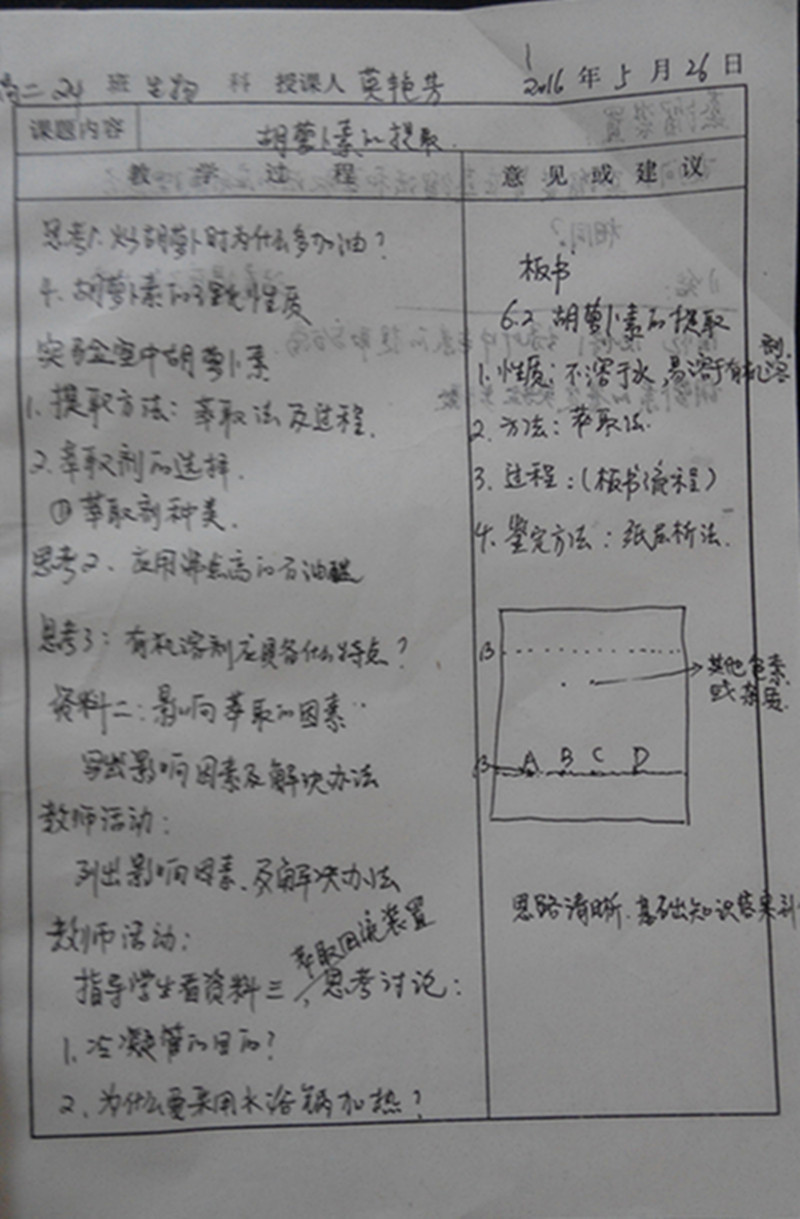 高二24 班 生物 科 授课人 莫艳芳 2016 年 5 月 26 日
课题内容 胡萝卜素的提取.
教 学 过 程
思考1. 炒胡萝卜时为什么多加油?
4. 胡萝卜素的理化性质
实验室中胡萝卜素
1. 提取方法: 萃取法及过程.
2. 萃取剂的选择.
① 萃取剂种类.
思考2、应用沸点高的石油醚
思考3: 有机溶剂应具备什么特点?
资料二: 影响萃取的因素
写出影响因素及解决办法
教师活动:
列出影响因素、及解决办法
教师活动:
指导学生看资料三 萃取回流装置, 思考讨论:
1. 冷凝管的目的?
2、为什么要采用水浴锅加热?
意 见 或 建 议
板书
6.2 胡萝卜素的提取
1. 性质: 不溶于水, 易溶于有机溶剂.
2. 方法: 萃取法.
3. 过程: (板书流程)
4. 鉴定方法: 纸层析法.
β
其他色素
或杂质.
β A B C D
思路清晰. 基础知识落实到